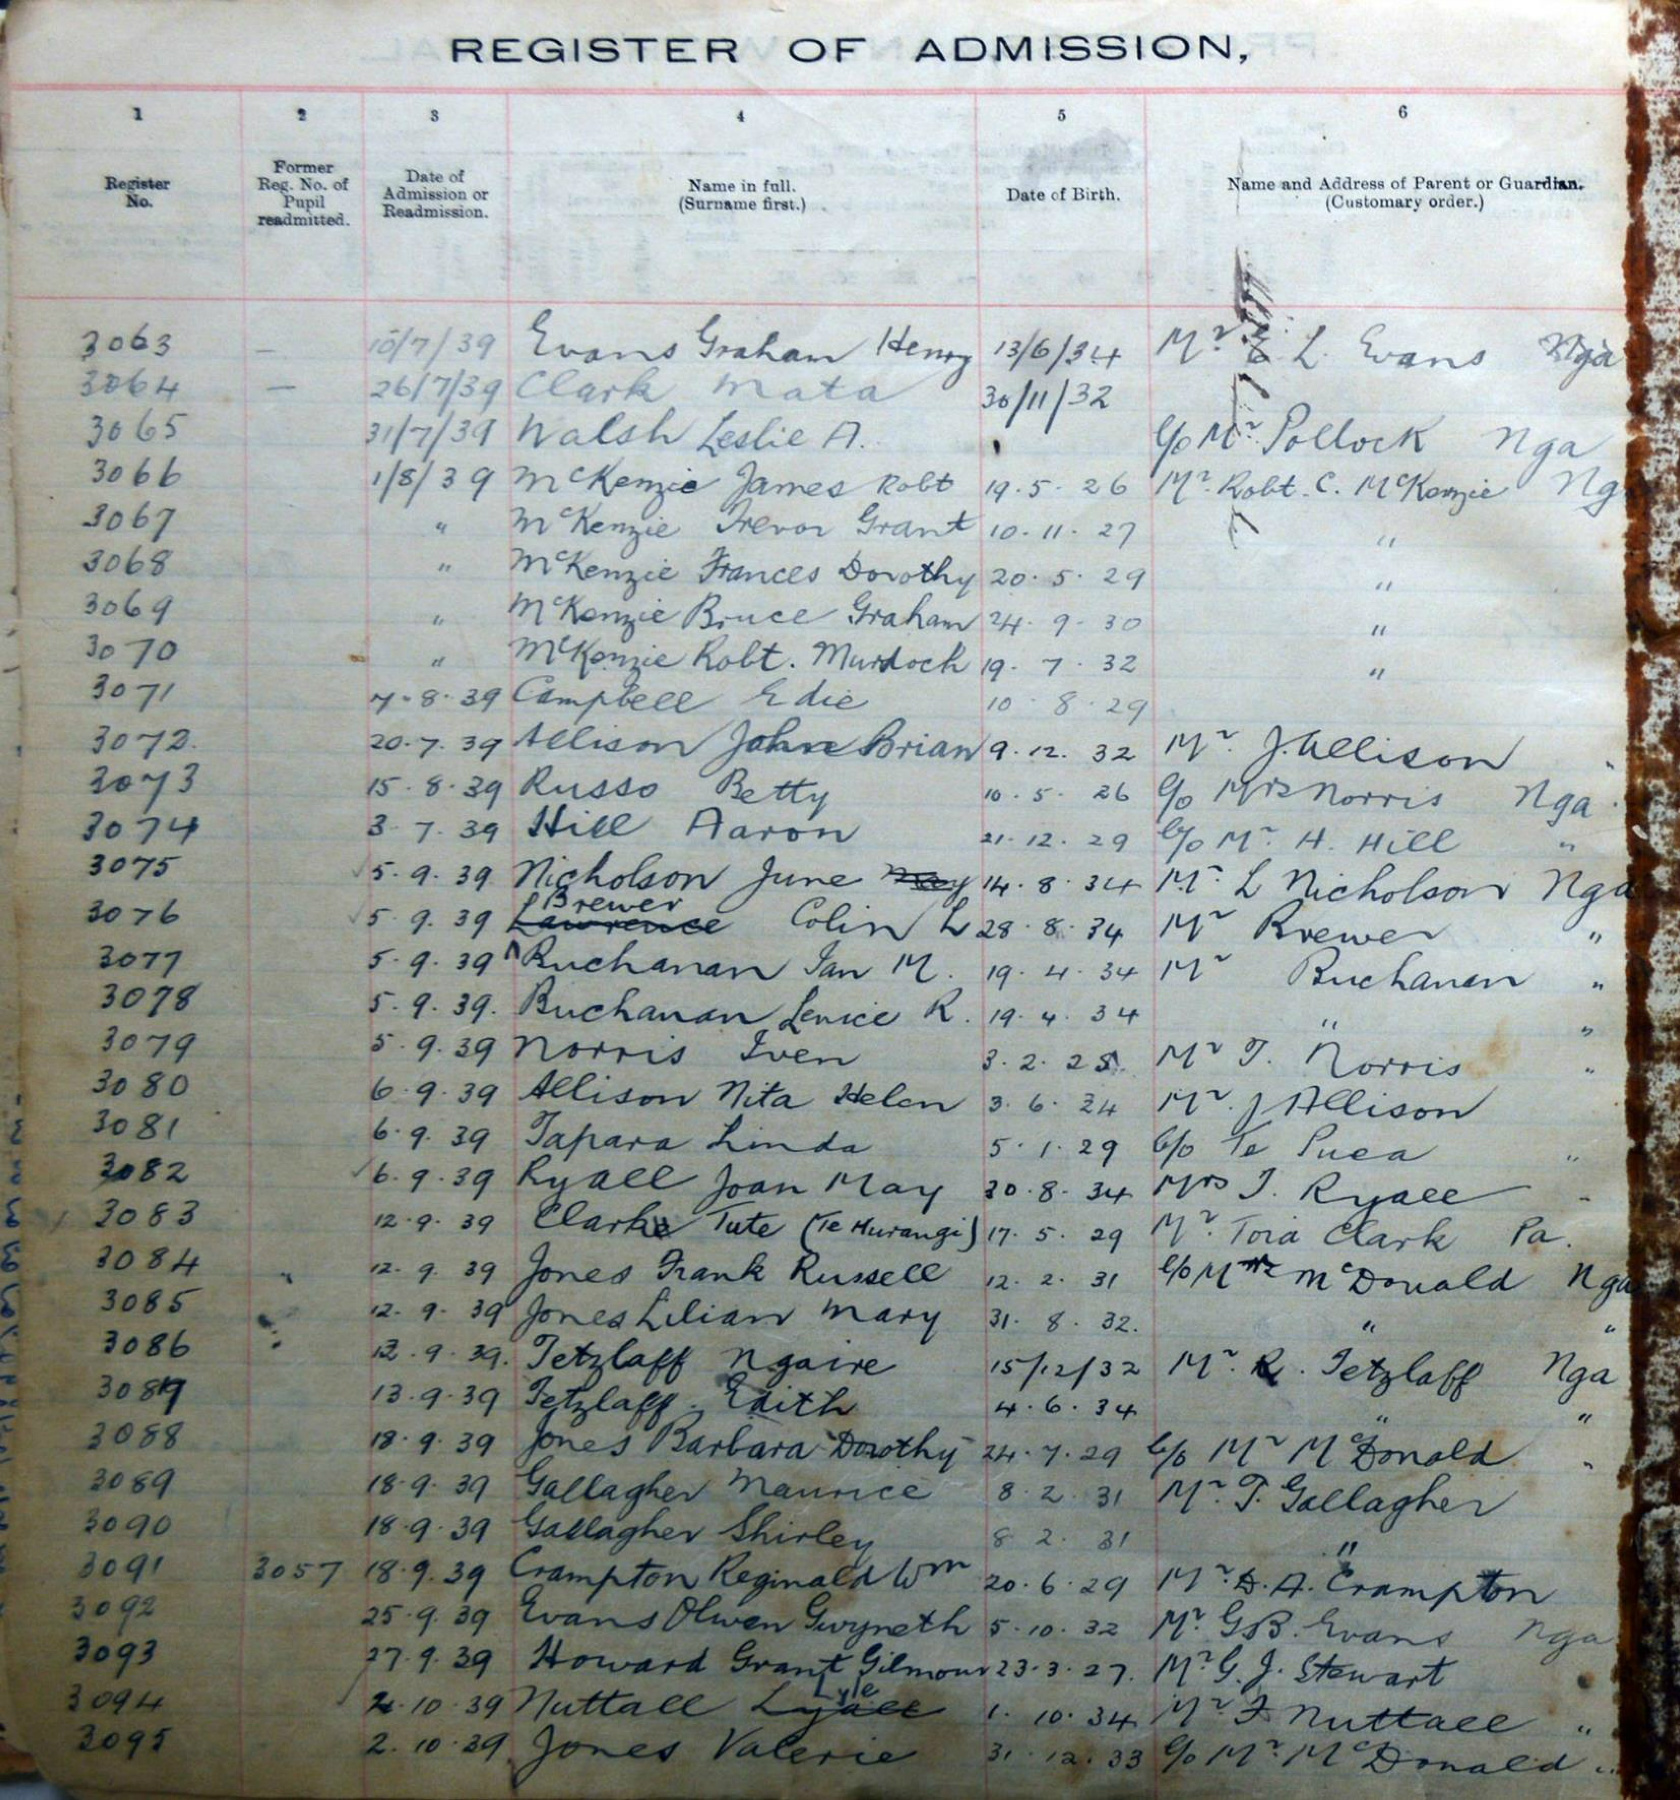 REGISTER OF ADMISSION,
1 2 3 4 5 6
Register No. Former Reg. No. of Pupil readmitted. Date of Admission or Readmission. Name in full. (Surname first.) Date of Birth. Name and Address of Parent or Guardian. (Customary order.)
3063 — 10/7/39 Evans Graham Henry 13/6/34 Mr E L. Evans Nga
3064 — 26/7/39 Clark Mata 30/11/32
3065 31/7/39 Walsh Leslie A. c/o Mr. Pollock Nga
3066 1/8/39 McKenzie James Robt 19.5.26 Mr. Robt. C. McKenzie Ng
3067 " McKenzie Trevor Grant 10.11.27 "
3068 " McKenzie Frances Dorothy 20.5.29 "
3069 " McKenzie Bruce Graham 24.9.30 "
3070 " McKenzie Robt. Murdoch 19.7.32 "
3071 7.8.39 Campbell Edie 10.8.29
3072. 20.7.39 Allison John Brian 9.12.32 Mr. J. Allison "
3073 15.8.39 Russo Betty 10.5.26 c/o Mrs Norris Nga
3074 3.7.39 Hill Aaron 21.12.29 c/o Mr. H. Hill "
3075 5.9.39 Nicholson June May 14.8.34 Mr. L Nicholson Nga
3076 5.9.39 Lawrence Brewer Colin L 28.8.34 Mr Brewer "
3077 5.9.39 Buchanan Ian M. 19.4.34 Mr Buchanan "
3078 5.9.39. Buchanan Lenice R. 19.4.34 " "
3079 5.9.39 Norris Iven 3.2.25 Mr T. Norris "
3080 6.9.39 Allison Nita Helen 3.6.34 Mr. J Allison
3081 6.9.39 Tapara Linda 5.1.29 c/o Te Puea "
3082 6.9.39 Ryall Joan May 30.8.34 Mrs T. Ryall "
3083 12.9.39 Clarke Tute (Te Murangi) 17.5.29 Mr. Toia Clark Pa.
3084 12.9.39 Jones Frank Russell 12.2.31 c/o Mr McDonald Nga
3085 12.9.39 Jones Lilian Mary 31.8.32. " "
3086 12.9.39. Tetzlaff Ngaire 15/12/32 Mr. R. Tetzlaff Nga
3087 13.9.39 Tetzlaff Edith 4.6.34 " "
3088 18.9.39 Jones Barbara Dorothy 24.7.29 c/o Mr McDonald "
3089 18.9.39 Gallagher Maurice 8.2.31 Mr. T. Gallagher
3090 18.9.39 Gallagher Shirley 8.2.31 "
3091 3057 18.9.39 Crampton Reginald Wm 20.6.29 Mr. D. A. Crampton
3092 25.9.39 Evans Olwen Gwyneth 5.10.32 Mr. G.B. Evans Nga
3093 27.9.39 Howard Grant Gilmour 23.3.27. Mr G. J. Stewart
3094 2.10.39 Nuttall Lyall Lyle 1.10.34 Mr F Nuttall "
3095 2.10.39 Jones Valerie 31.12.33 c/o Mr. McDonald "